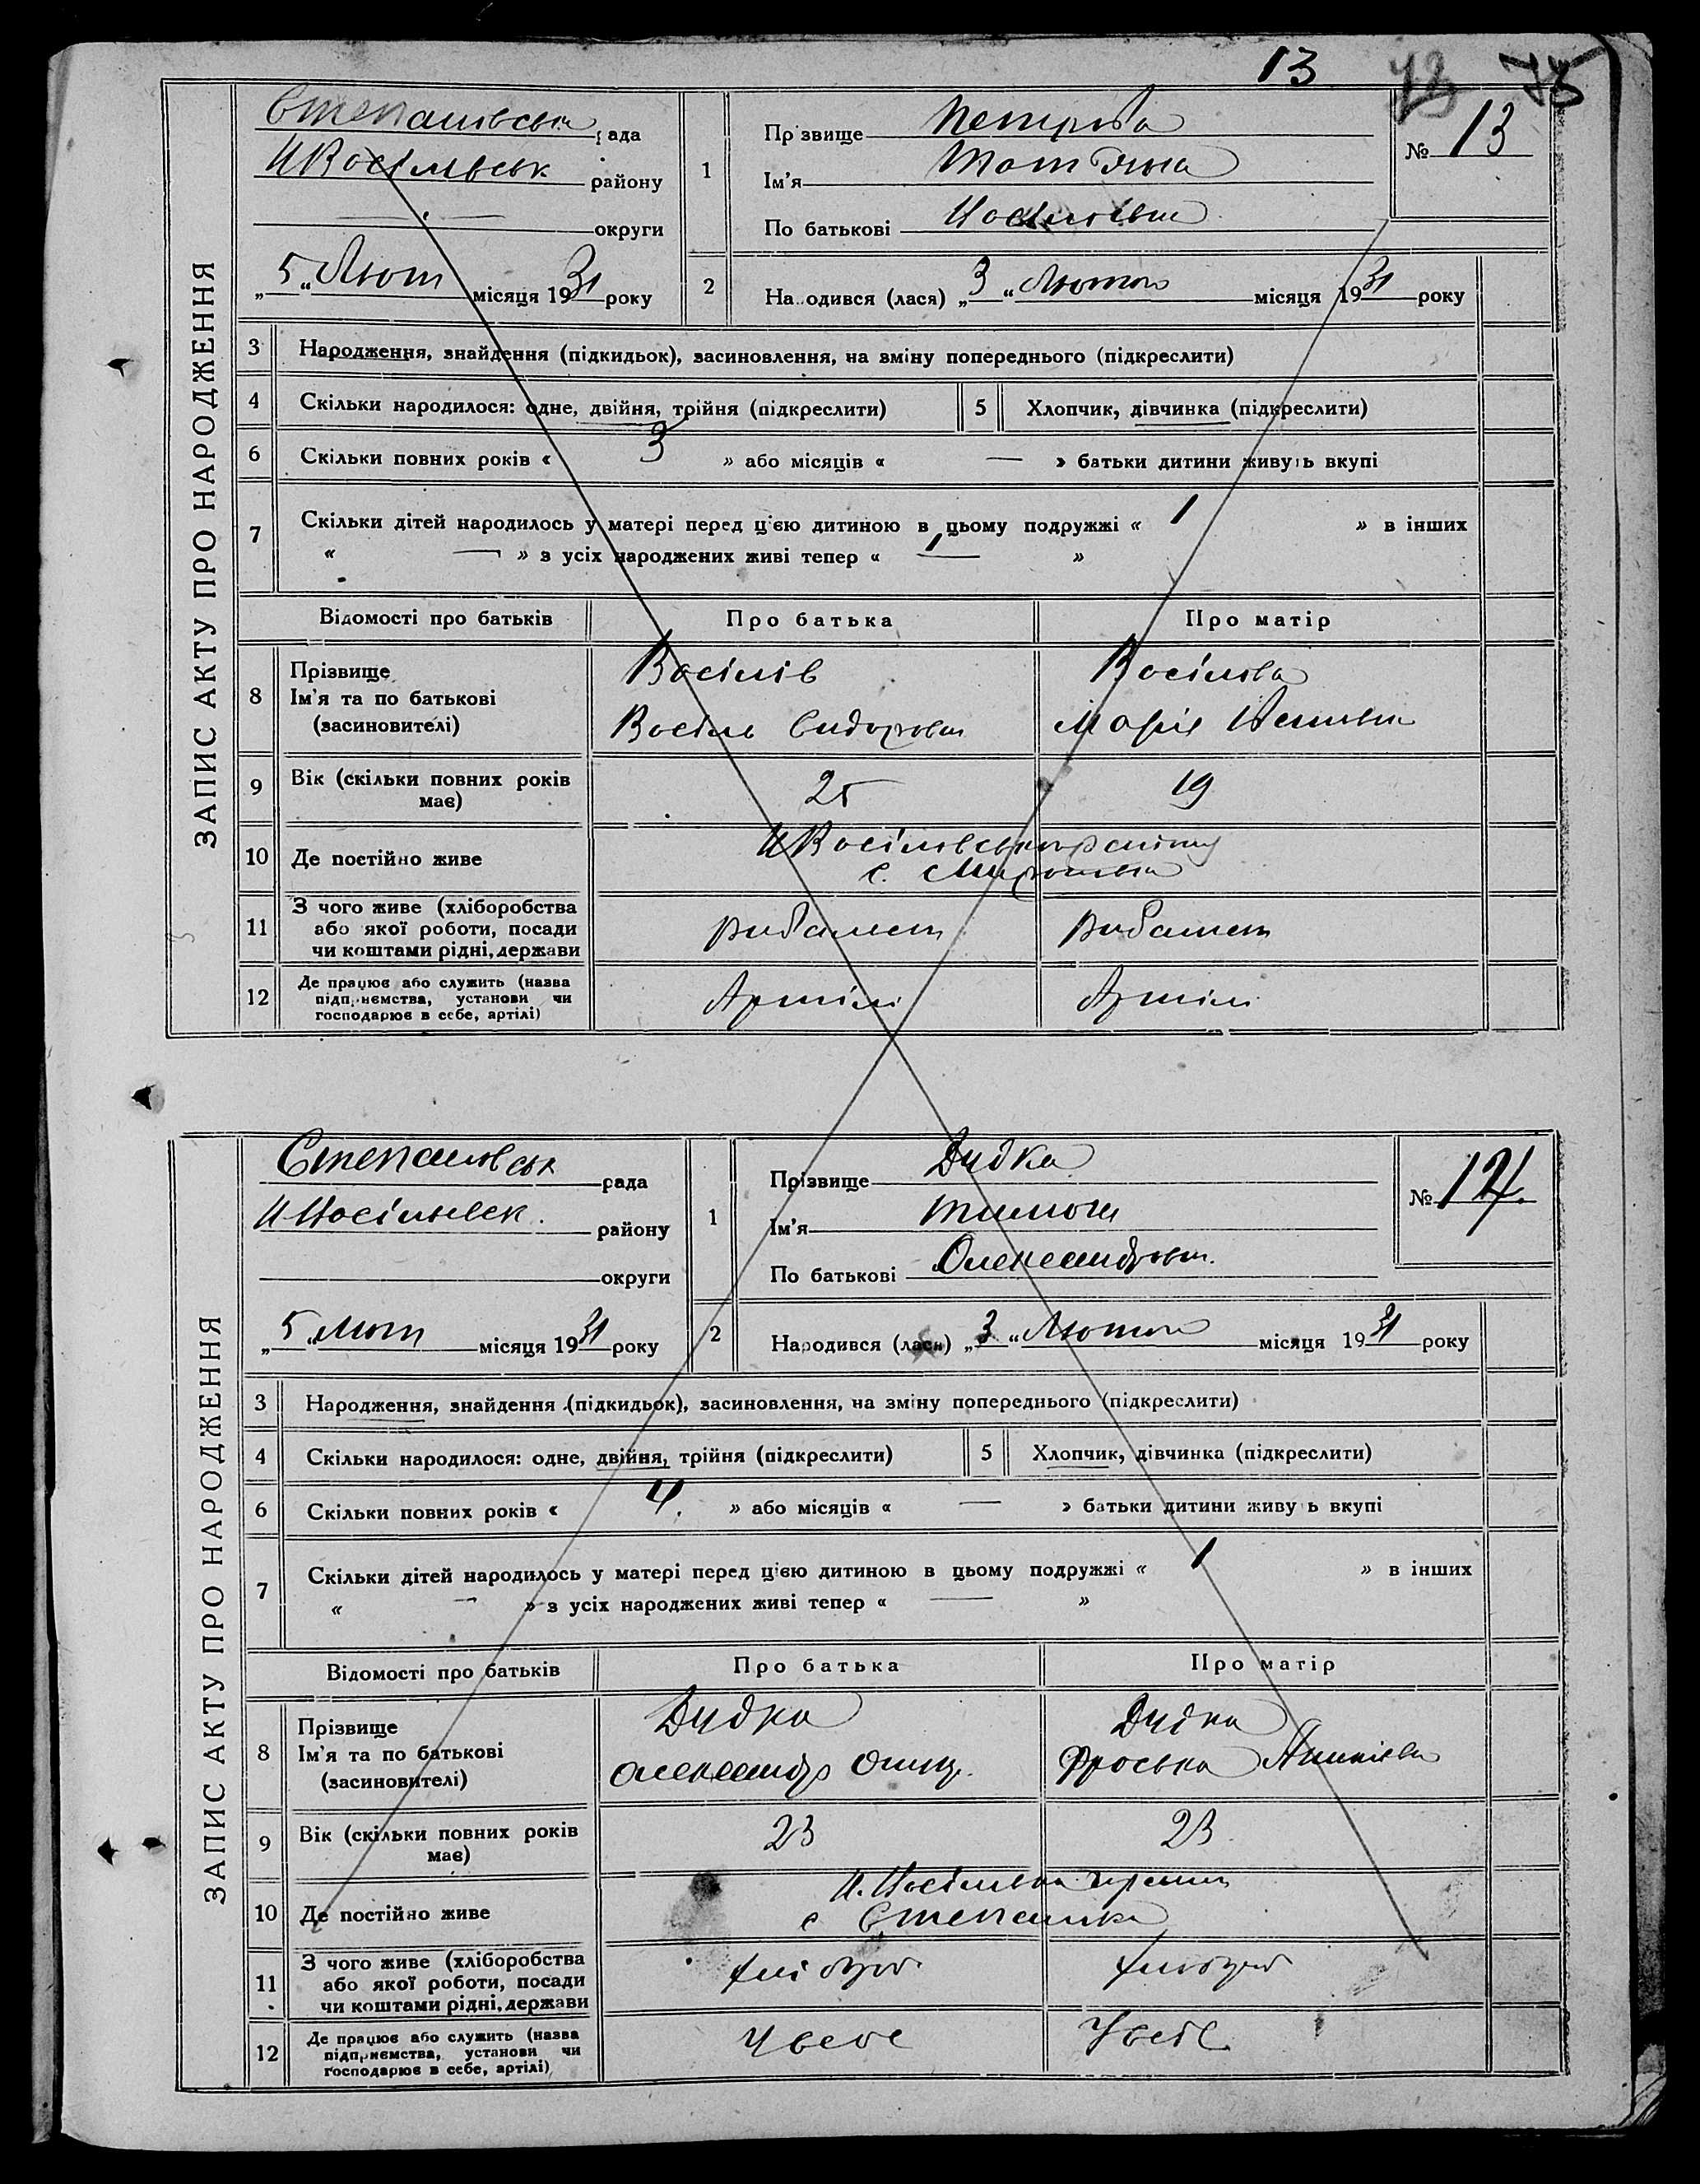 13 73 75
ЗАПИС АКТУ ПРО НАРОДЖЕННЯ
Степанівська рада
району
округи
„5“ Лют місяця 1931 року
1
Прізвище Петрова
Ім'я
По батькові
№ 13
2
На..одився (лася) „3“ Лютого місяця 1931 року
3 Народження, знайдення (підкидьок), засиновлення, на зміну попереднього (підкреслити)
4 Скільки народилося: одне, двійня, трійня (підкреслити)
5 Хлопчик, дівчинка (підкреслити)
6 Скільки повних років « 3 » або місяців « — » батьки дитини живуть вкупі
7 Скільки дітей народилось у матері перед цією дитиною в цьому подружжі « 1 » в інших
« — » з усіх народжених живі тепер « 1 »
Відомості про батьків Про батька Про матір
8 Прізвище
Ім'я та по батькові
(засиновителі)
Васілів
Васіль Сидорович
Васілова
Марія
9 Вік (скільки повних років
має)
25 19
10 Де постійно живе
с.
11 З чого живе (хліборобства
або якої роботи, посади
чи коштами рідні, держави
рибалит рибалит
12 Де працює або служить (назва
підприємства, установи чи
господарює в себе, артілі)
Артілі Артілі
ЗАПИС АКТУ ПРО НАРОДЖЕННЯ
Степановськ рада
району
округи
„5“ Лют місяця 1931 року
1
Прізвище Дудка
Ім'я
По батькові Олександрович
№ 14.
2
Народився (лася) „3“ Лютого місяця 1931 року
3 Народження, знайдення (підкидьок), засиновлення, на зміну попереднього (підкреслити)
4 Скільки народилося: одне, двійня, трійня (підкреслити)
5 Хлопчик, дівчинка (підкреслити)
6 Скільки повних років « 4. » або місяців « — » батьки дитини живу ь вкупі
7 Скільки дітей народилось у матері перед цією дитиною в цьому подружжі « 1 » в інших
« — » з усіх народжених живі тепер « — »
Відомості про батьків Про батька Про матір
8 Прізвище
Ім'я та по батькові
(засиновителі)
Дудка
Олександр
Дудка
Фроська
9 Вік (скільки повних років
має)
23 23
10 Де постійно живе
с Степанівка
11 З чого живе (хліборобства
або якої роботи, посади
чи коштами рідні, держави
хлібороб хлібороб
12 Де працює або служить (назва
підприємства, установи чи
господарює в себе, артілі)
У себе У себе